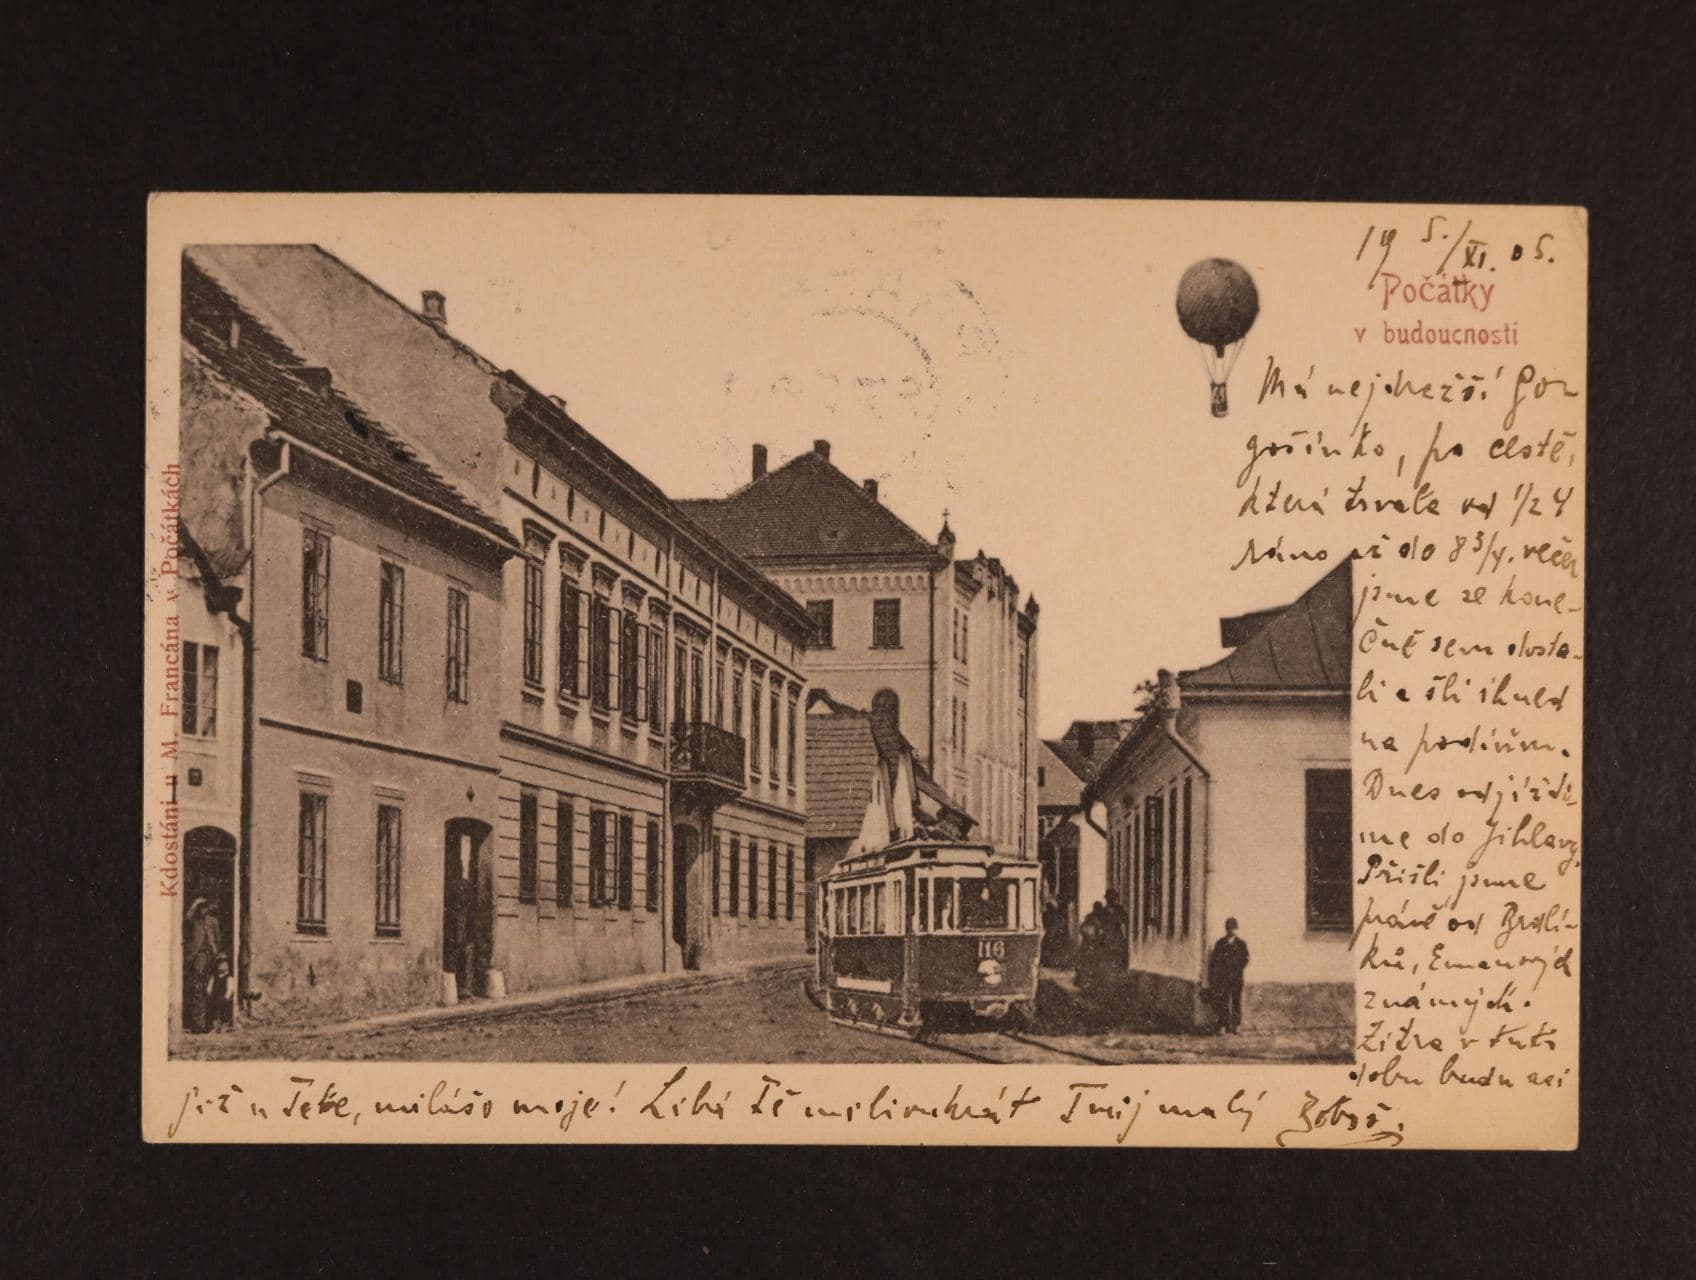 19 5./XI. 05.
Počátky
v budoucnosti
Má nejdražší Gor-
gošinko, po cestě,
která trvala od 1/2 4
ráno až do 8 3/4. večer
jsme se kone-
čně sem dosta-
li a šli ihned
na podium.
Dnes odjíždí-
me do Jihlavy.
Přišli jsme
právě od Brdlí-
ků, Emanových
známých.
Zítra v tuto
dobu budu asi
již u Tebe, milášo moje! Líbá Tě milionkrát Tvůj malý
K dostání u M. Francána v Počátkách
116